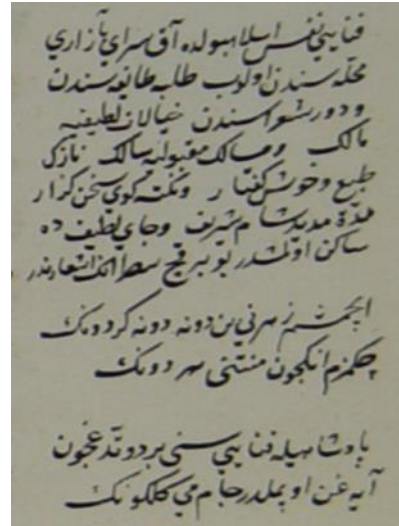 فنايي نفس اسلامبولده آق سراي بازاري
محله سندن اولوب طلبه طائفه سندن
ودور شعراسندن خيالات لطيفيه
مالك ومسالك مقبوليه سالك نازك
طبع وخوش كفتار ونكته كوي سخن كزار
مدة مديد شام شريف وجاي لطيف ده
ساكن اولمشدر بو بر قچ سطر انك اشعارندر
ايچمشم زهرني بن دونه دونه كردونك
چكمزم انكچون منتني هر دونك
پادشاهيله فنايي سني بر دوتدغچون
آيه غن اوپملدر جام مي كلكونك